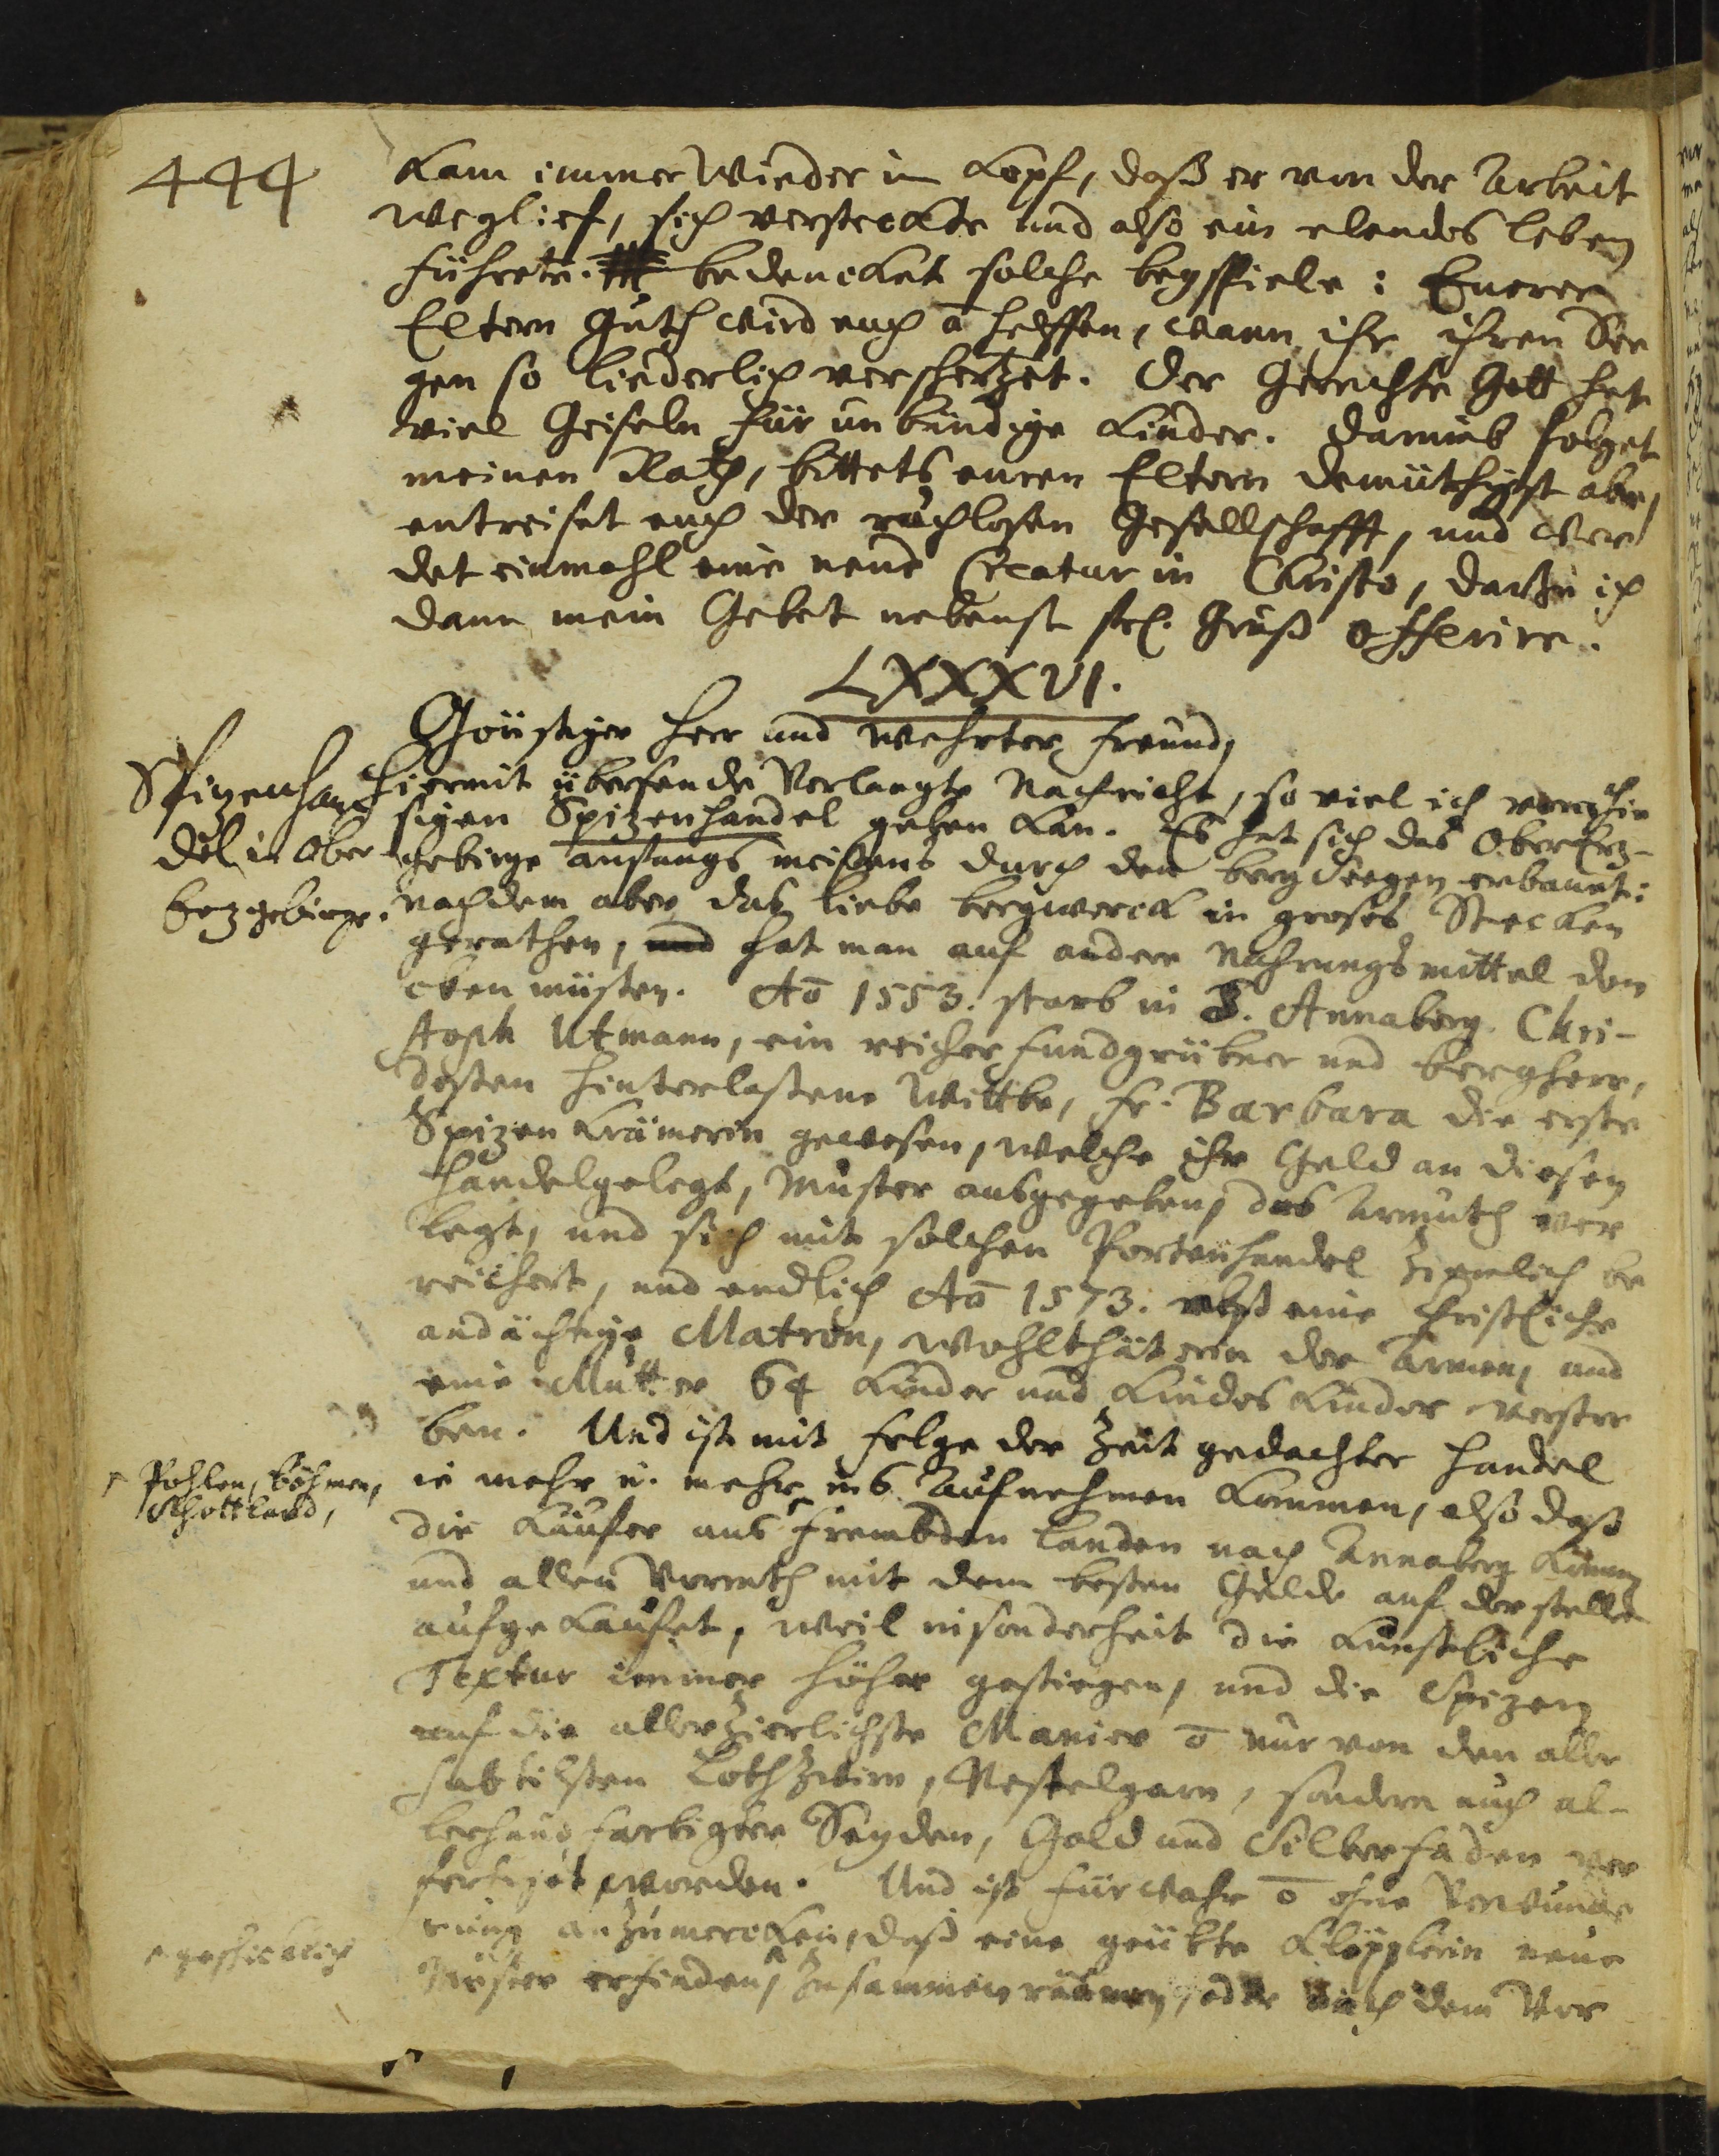 444
kam immer wieder in Kopf, daß er von der Arbeit
weglief, sich versteckte und also ein elendes leben
führete. bedencket solche beyspiele: Eurer
Eltern Guth wird euch ō helffen, wann ihr ihren See
gen so liederlich verschertzet. Der Gerechte Gott hat
viel Geiseln für unbändige Kinder. Darumb folget
meinen Rath, bittets euren Eltern demüthigst abe,
entreiset euch der ruchlosen Gesellschafft, und wer
det einmahl eine neue Creatur in Christo, darzu ich
dann mein Gebet nebenst frl. Gruß offerire.
LXXXVI.
Günstiger Herr und wehrter freund,
Spizenhan
del in Ober
Erzgebirge.
Hiermit übersende Verlangte Nachricht, so viel ich von hie
sigen Spizenhandel geben kan. Es hat sich das OberErz-
gebirge anfangs meistens durch den berg Seegen erbauet:
nachdem aber das liebe bergwerck in groses Stecken
gerathen, hat man auf andere Nahrungsmittel den
cken müsten. Aō 1553. starb in S. Annaberg Chri-
stoph Utmann, ein reicher fundgrübner und bergherr,
deßen hinterlaßene Wittbe, fr. Barbara die erste
Spizen Krämerin gewesen, welche ihr Geld an diesen
handel gelegt, Muster ausgegeben, das Armuth ver
legt, und sich mit solchen Portenhandel ziemlich be
reichert, und endlich Aō 1573. als eine Christliche
andächtige Matron, wohlthäterin der Armen, und
eine Mutter 64 Kinder und Kindes Kinder verstor
ben. Und ist mit folge der Zeit gedachter handel
ie mehr u. mehr ins Aufnehmen kommen, also daß
Pohlen, böhmen,
Schottland,
die Käufer aus frembden landen nach Annaberg kommen
und allen Vorrath mit dem besten Gelde auf der stelle
aufgekaufet, weil insonderheit die künstliche
Textur immer höher gestiegen, und die Spizen
auf die allerzierlichste Manier ō nur von den aller
subtilsten Lothzwirn, Nestelgarn, sondern auch al-
lerhand farbigter Seyden, Gold und Silberfäden ver
fertiget worden. Und ist fürwahr ō ohne Verwunde
rung anzumercken, daß eine geübte Klöpplerin neue
geschicklich
Muster erfinden, zusammen räumen, oder nach dem Vor